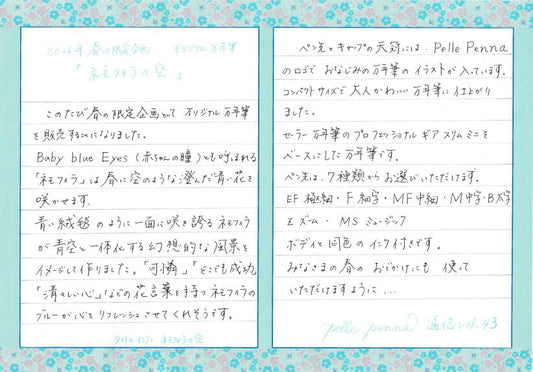 2026年 春の限定企画 オリジナル万年筆
「ネモフィラの空」
このたび春の限定企画として オリジナル万年筆
を販売することになりました。
Baby blue Eyes (赤ちゃんの瞳)とも呼ばれる
「ネモフィラ」は春に空のような澄んだ青い花を
咲かせます。
青い絨毯のように一面に咲き誇るネモフィラ
が青空と一体化する幻想的な風景を
イメージして作りました。「可憐」「どこでも成功」
「清々しい心」などの花言葉を持つネモフィラの
ブルーが心をリフレッシュさせてくれそうです。
ネモフィラの空
ペン先とキャップの天冠には、Pelle Penna
のロゴで おなじみの万年筆の イラストが入っています。
コンパクトサイズで大人かわいい万年筆に仕上がり
ました。
セーラー万年筆のプロフェッショナル ギア スリム ミニを
ベースにした万年筆です。
ペン先は、7種類からお選びいただけます。
EF 極細・F 細字・MF 中細・M 中字・B 太字
Z ズーム・MS ミュージック
ボディと同色の インク付きです。
みなさまの春の おでかけにも 使って
いただけますように…
pelle penna 通信 vol.43